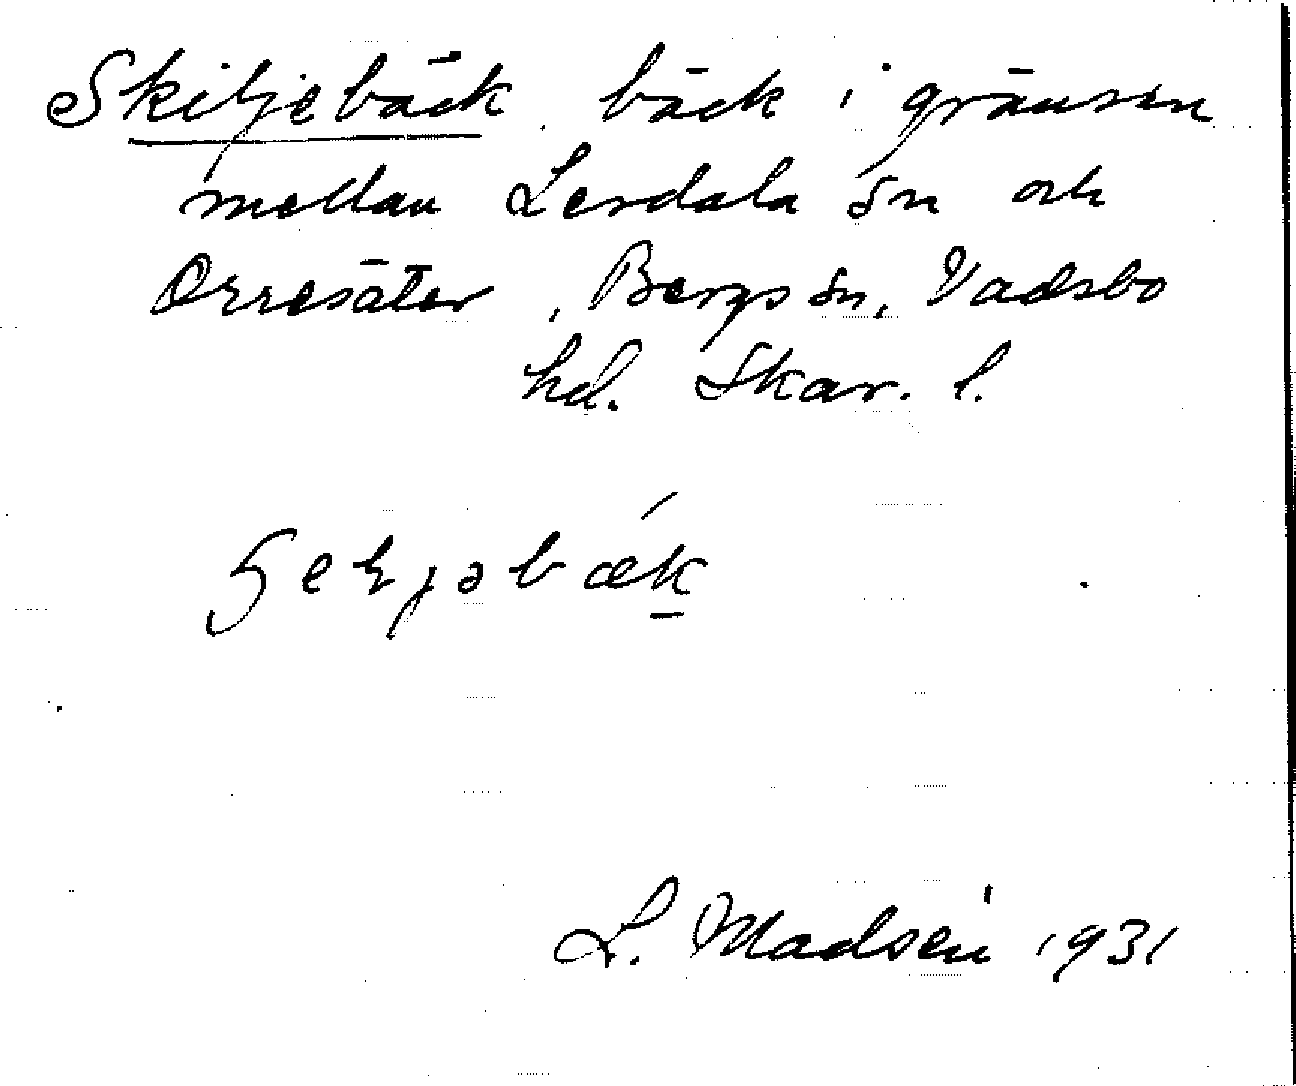 Skiljebäck, bäck i gränsen
mellan Lerdala sn och
Orresäter, Bergs sn, Vadsbo
hd. Skar. l.
L. Madsén 1931